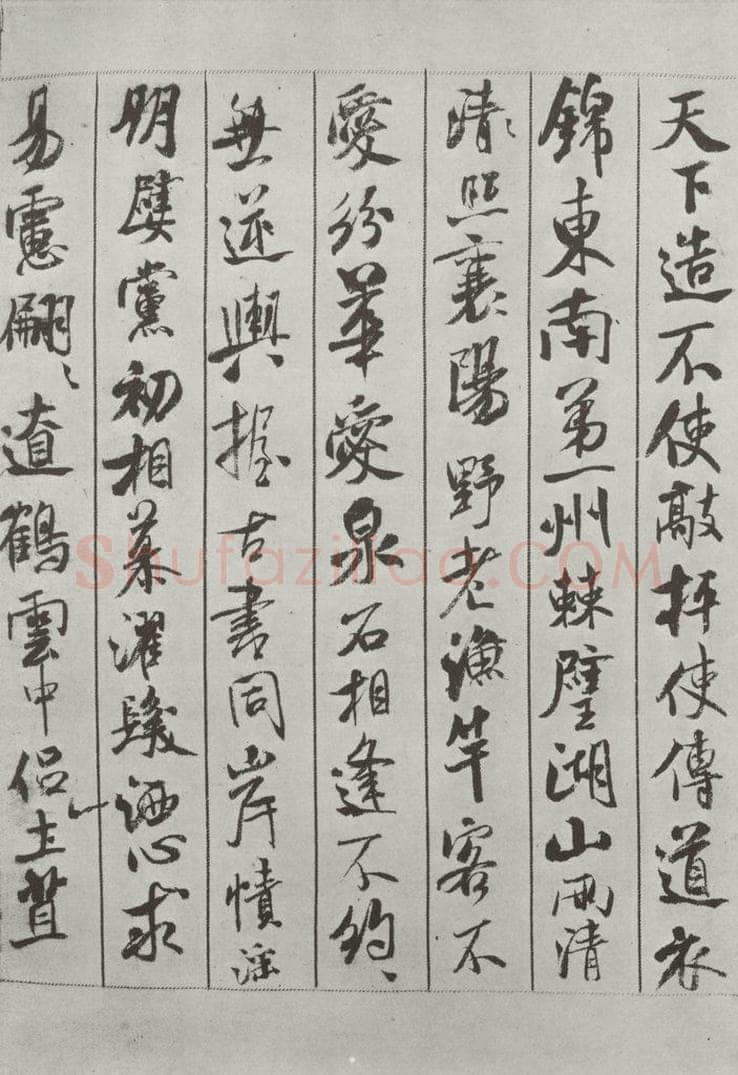 天下造不使敲枰使傳道衣
錦東南第一州棘璧湖山兩清
清、照襄陽野老漁竿客不
愛紛華愛泉石相逢不約、
無逆輿握古書同岸幘淫
明嬖黨初相慕濯髮洒心求
易慮翩、遼鶴雲中侶土苴
Shufaziliao.COM